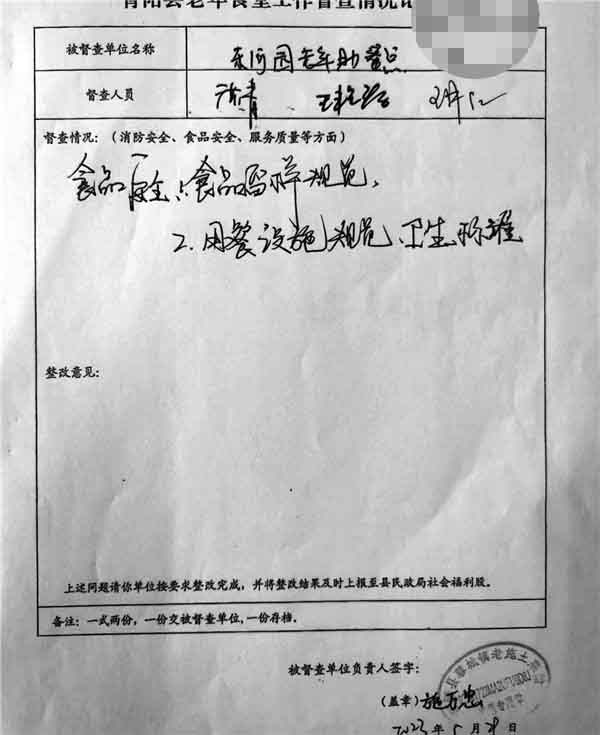 青阳县老年食堂工作督查情况记
被督查单位名称
东河园老年助餐点
督查人员
督查情况:(消防安全、食品安全、服务质量等方面)
食品安全:食品留样规范,
2.用餐设施规范、卫生
整改意见:
上述问题请你单位按要求整改完成,并将整改结果及时上报至县民政局社会福利股。
备注:一式两份,一份交被督查单位,一份存档。
被督查单位负责人签字:
(盖章) 施万忠
2023年5月29日